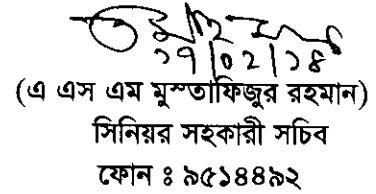 ১৭|০২|১৪
(এ এস এম মুস্তাফিজুর রহমান)
সিনিয়র সহকারী সচিব
ফোন ঃ ৯৫১৪৪৯২